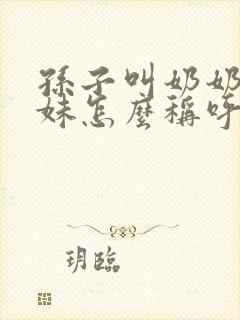 孫子叫奶奶
妹怎麼稱呼
玥臨